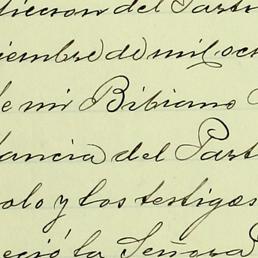 diccion del Parti
iembre de mil och
de mi Bibiano
tancia del Part
olo y los testigos
eció la Señora